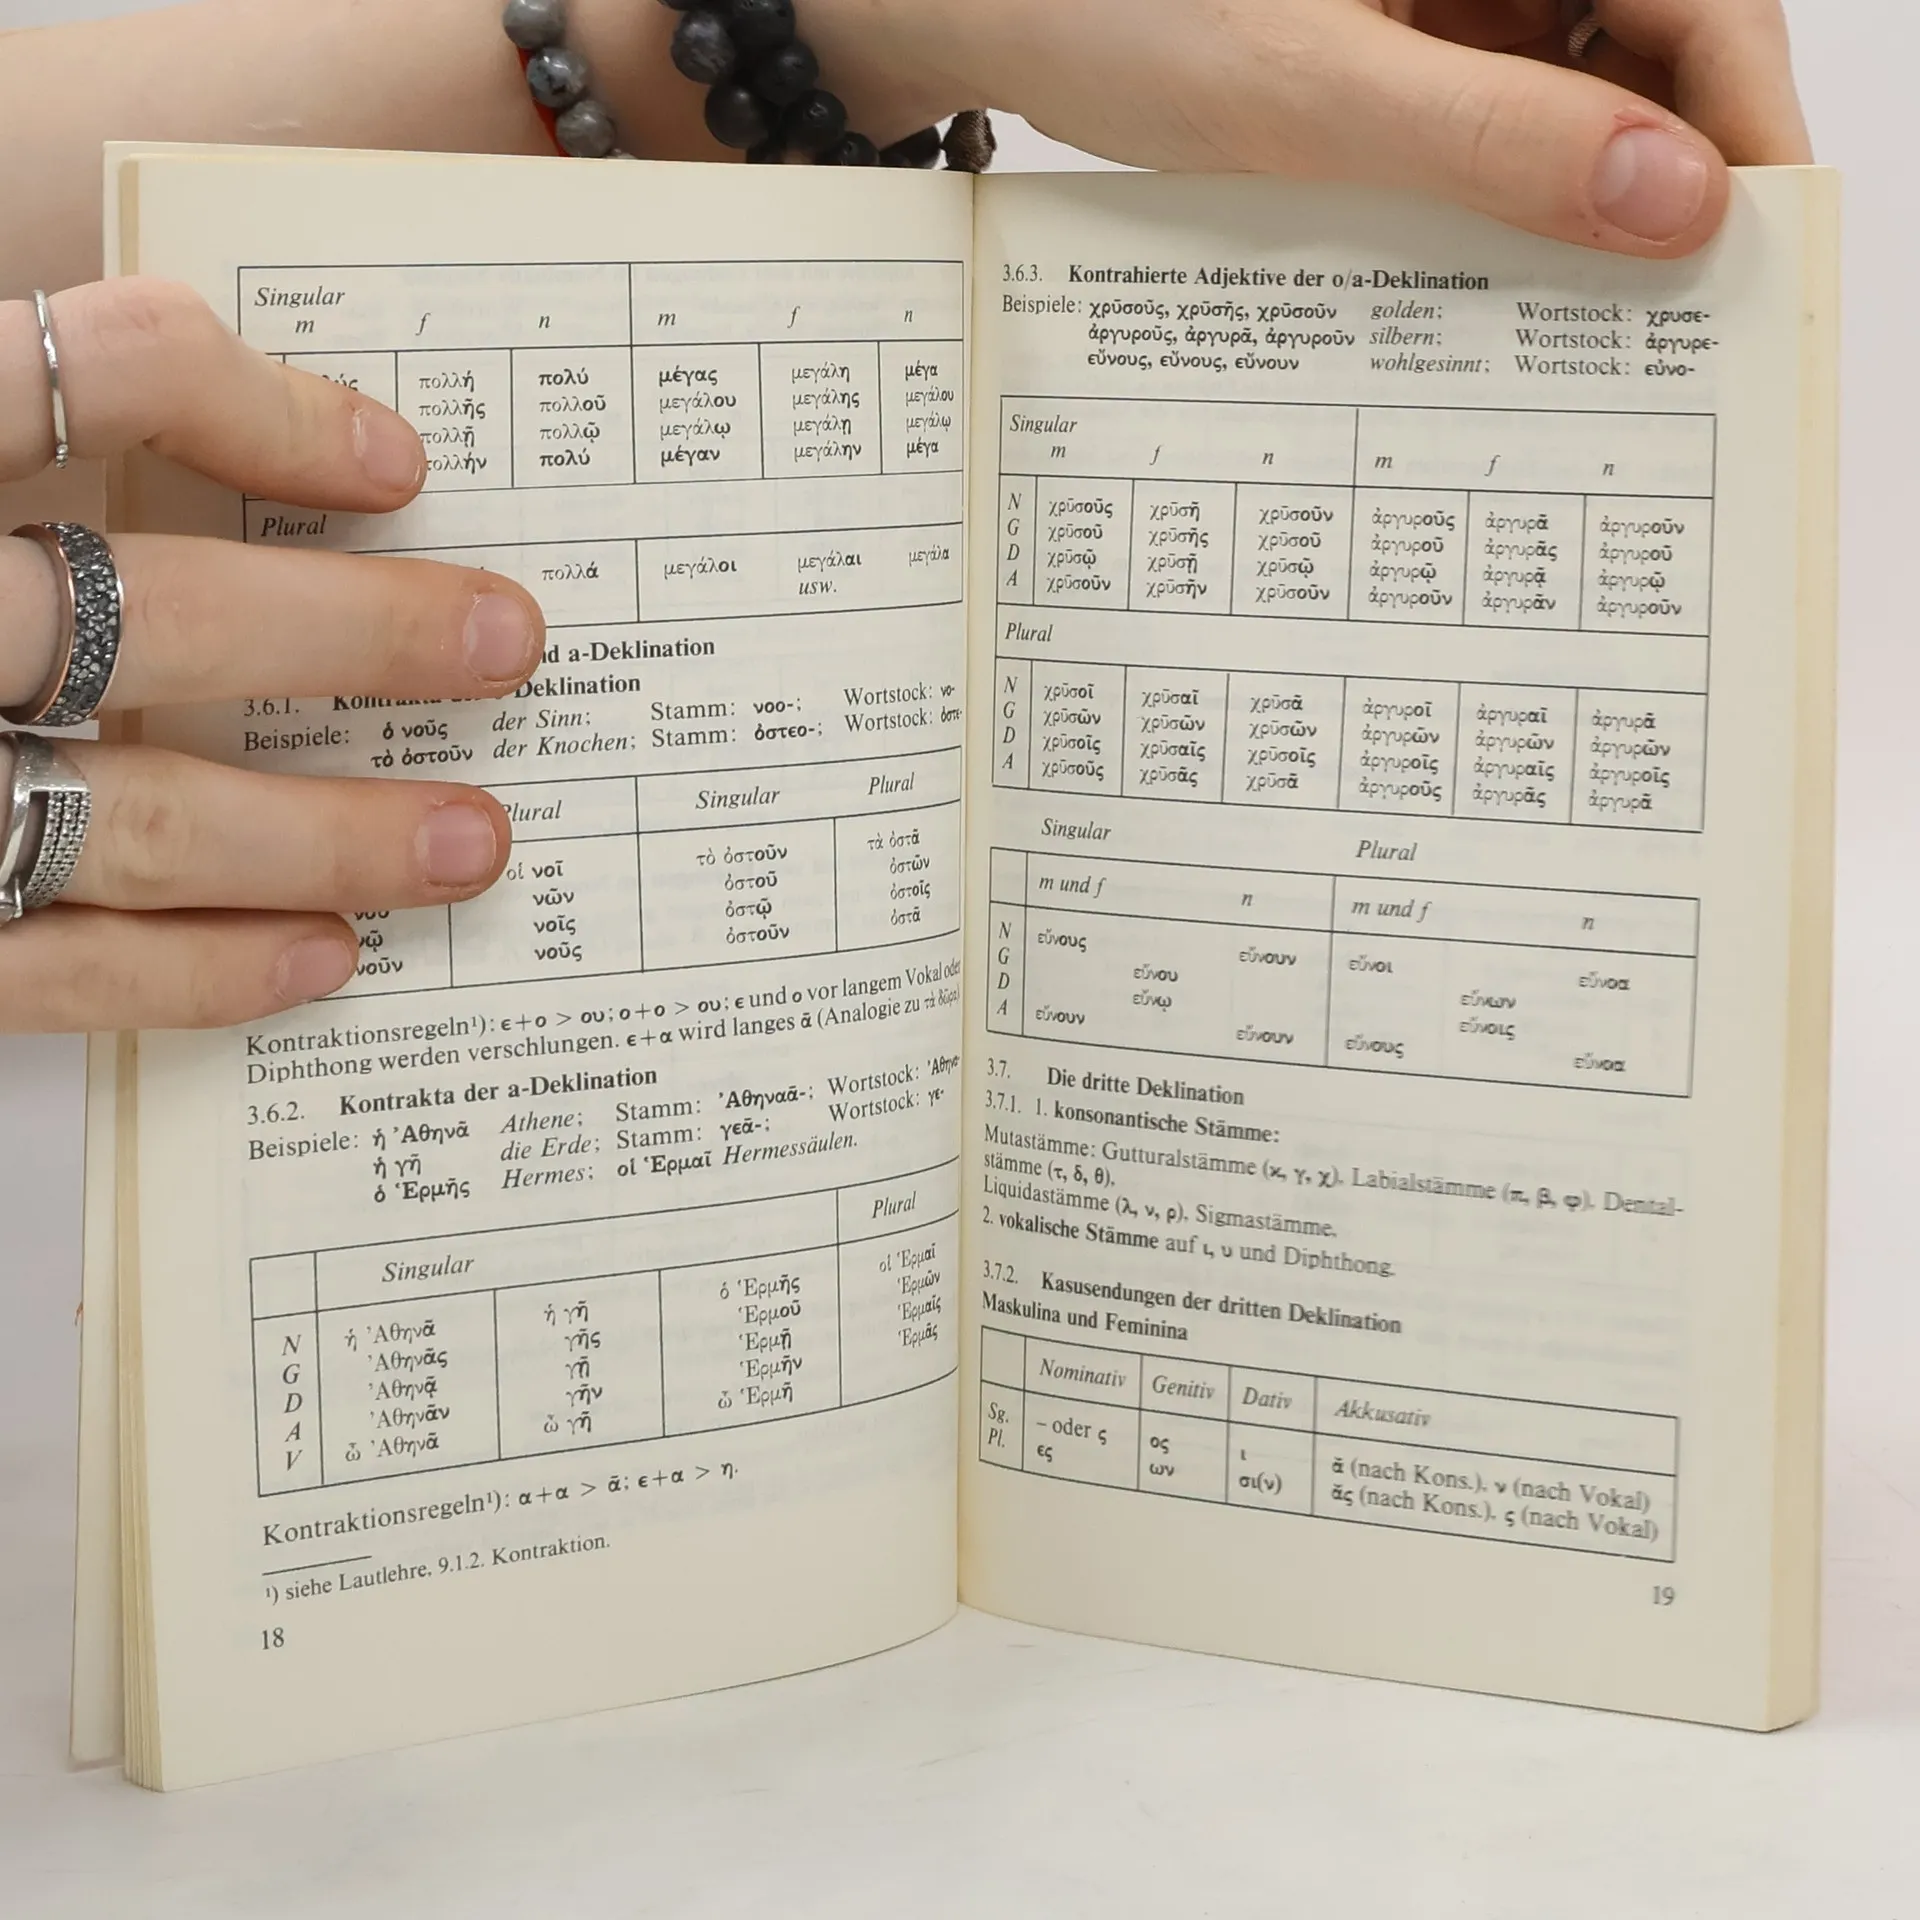 Singular
m f n m f n
πολλή πολύ μέγας μεγάλη μέγα
πολλῆς πολλοῦ μεγάλου μεγάλης μεγάλου
πολλῇ πολλῷ μεγάλῳ μεγάλῃ μεγάλῳ
πολλήν πολύ μέγαν μεγάλην μέγα
Plural
πολλά μεγάλοι μεγάλαι μεγάλα
usw.
a-Deklination
3.6.1. Kontrakta Deklination
Beispiele: ὁ νοῦς der Sinn; Stamm: νοο-; Wortstock: νο-
τὸ ὀστοῦν der Knochen; Stamm: ὀστεο-; Wortstock: ὀστε-
Plural Singular Plural
οἱ νοῖ τὸ ὀστοῦν τὰ ὀστᾶ
νῶν ὀστοῦ ὀστῶν
νῷ νοῖς ὀστῷ ὀστοῖς
νοῦν νοῦς ὀστοῦν ὀστᾶ
Kontraktionsregeln¹): ε+ο > ου; ο+ο > ου; ε und ο vor langem Vokal oder
Diphthong werden verschlungen. ε+α wird langes ᾱ (Analogie zu τὰ δῶρα)
3.6.2. Kontrakta der a-Deklination
Beispiele: ἡ Ἀθηνᾶ Athene; Stamm: Ἀθηναᾱ-; Wortstock: Ἀθηνα-
ἡ γῆ die Erde; Stamm: γεᾱ-; Wortstock: γε-
ὁ Ἑρμῆς Hermes; οἱ Ἑρμαῖ Hermessäulen.
Singular Plural
N ἡ Ἀθηνᾶ ἡ γῆ ὁ Ἑρμῆς οἱ Ἑρμαῖ
G Ἀθηνᾶς γῆς Ἑρμοῦ Ἑρμῶν
D Ἀθηνᾷ γῇ Ἑρμῇ Ἑρμαῖς
A Ἀθηνᾶν γῆν Ἑρμῆν Ἑρμᾶς
V ὦ Ἀθηνᾶ ὦ γῆ ὦ Ἑρμῆ
Kontraktionsregeln¹): α+α > ᾱ; ε+α > η.
¹) siehe Lautlehre, 9.1.2. Kontraktion.
18
3.6.3. Kontrahierte Adjektive der o/a-Deklination
Beispiele: χρῡσοῦς, χρῡσῆς, χρῡσοῦν golden; Wortstock: χρυσε-
ἀργυροῦς, ἀργυρᾶ, ἀργυροῦν silbern; Wortstock: ἀργυρε-
εὔνους, εὔνους, εὔνουν wohlgesinnt; Wortstock: εὐνο-
Singular
m f n m f n
N χρῡσοῦς χρῡσῆ χρῡσοῦν ἀργυροῦς ἀργυρᾶ ἀργυροῦν
G χρῡσοῦ χρῡσῆς χρῡσοῦ ἀργυροῦ ἀργυρᾶς ἀργυροῦ
D χρῡσῷ χρῡσῇ χρῡσῷ ἀργυρῷ ἀργυρᾷ ἀργυρῷ
A χρῡσοῦν χρῡσῆν χρῡσοῦν ἀργυροῦν ἀργυρᾶν ἀργυροῦν
Plural
N χρῡσοῖ χρῡσαῖ χρῡσᾶ ἀργυροῖ ἀργυραῖ ἀργυρᾶ
G χρῡσῶν χρῡσῶν χρῡσῶν ἀργυρῶν ἀργυρῶν ἀργυρῶν
D χρῡσοῖς χρῡσαῖς χρῡσοῖς ἀργυροῖς ἀργυραῖς ἀργυροῖς
A χρῡσοῦς χρῡσᾶς χρῡσᾶ ἀργυροῦς ἀργυρᾶς ἀργυρᾶ
Singular Plural
m und f n m und f n
N εὔνους εὔνουν εὖνοι εὔνοα
G εὔνου εὔνων
D εὔνῳ εὔνοις
A εὔνουν εὔνουν εὔνους εὔνοα
3.7. Die dritte Deklination
3.7.1. 1. konsonantische Stämme:
Mutastämme: Gutturalstämme (κ, γ, χ), Labialstämme (π, β, φ), Dental-
stämme (τ, δ, θ),
Liquidastämme (λ, ν, ρ), Sigmastämme.
2. vokalische Stämme auf ι, υ und Diphthong.
3.7.2. Kasusendungen der dritten Deklination
Maskulina und Feminina
Nominativ Genitiv Dativ Akkusativ
Sg. – oder ς ος ι ᾰ (nach Kons.), ν (nach Vokal)
Pl. ες ων σι(ν) ᾰς (nach Kons.), ς (nach Vokal)
19